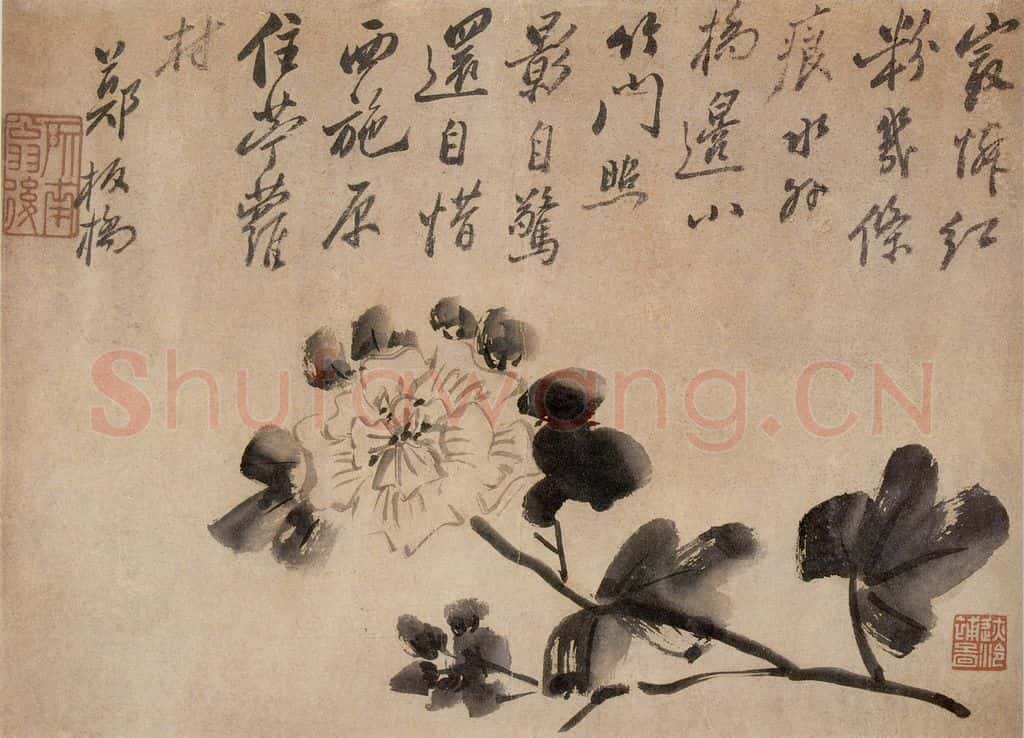 最憐紅
粉幾條
痕水外
橋邊小
竹門照
影自驚
還自惜
西施原
住苧蘿
村
鄭板橋
所南翁後
Shufawang.CN